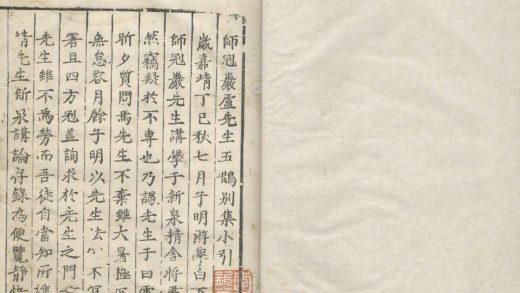 師冠巖盧先生五鵲別集小引
歲嘉靖丁巳秋七月子明游學白下
師冠巖先生講學于新泉精舍將
然竊疑於不專也乃謁先生子曰
昕夕質問焉先生不棄雖大暑極
無怠容月餘子明以先生
署且四方冠蓋詢求於先生之門
先生雖不爲勞而吾徒自當知所
先生斯泉講論錄為便覽靜